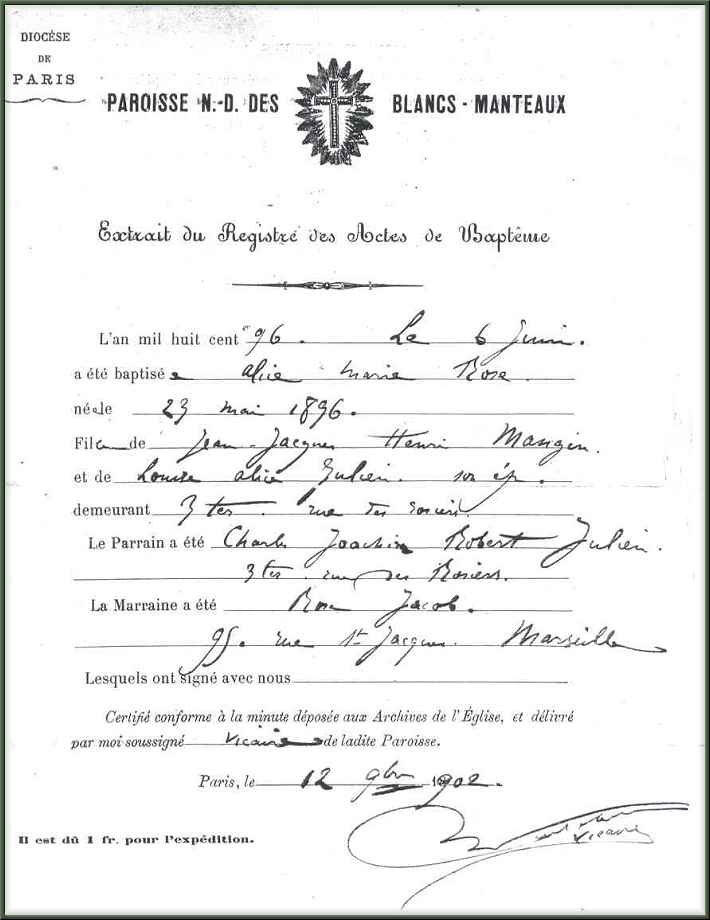 DIOCÉSE
DE
PARIS
PAROISSE N.-D. DES BLANCS-MANTEAUX
Extrait du Registre des Actes de Baptême
L'an mil huit cent 96. Le 6 Juin.
a été baptisée Alice Marie Rose
née le 23 mai 1896.
Fille de Jean-Jacques Henri Mangin.
et de Louise Alice Julien. son ép.
demeurant 3 ter. rue des rosiers.
Le Parrain a été Charles Joachim Robert Julien.
3 ter. rue des Rosiers.
La Marraine a été Rose Jacob.
95. rue St Jacques. Marseille
Lesquels ont signé avec nous
Certifié conforme à la minute déposée aux Archives de l'Église, et délivré
par moi soussigné vicaire de ladite Paroisse.
Paris, le 12 9bre 1902.
vicaire
Il est dû 1 fr. pour l'expédition.